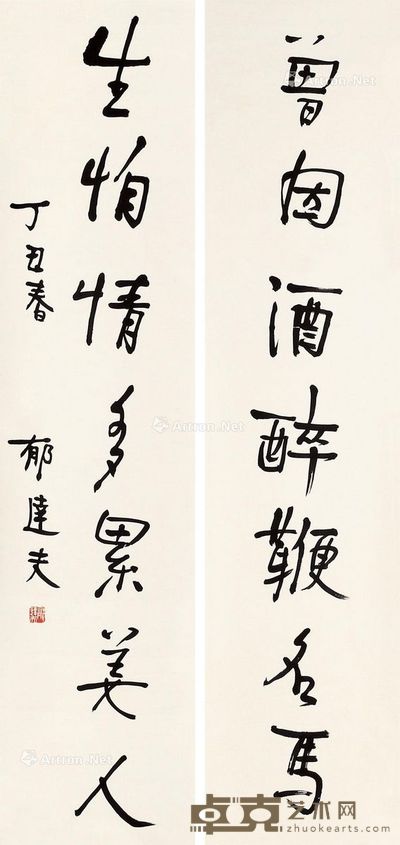 曾因酒醉鞭名馬
生怕情多累美人
丁丑春
郁達夫
Artron.Net
Artron.Net
Artron.Net
卓克艺术网
zhuokearts.com